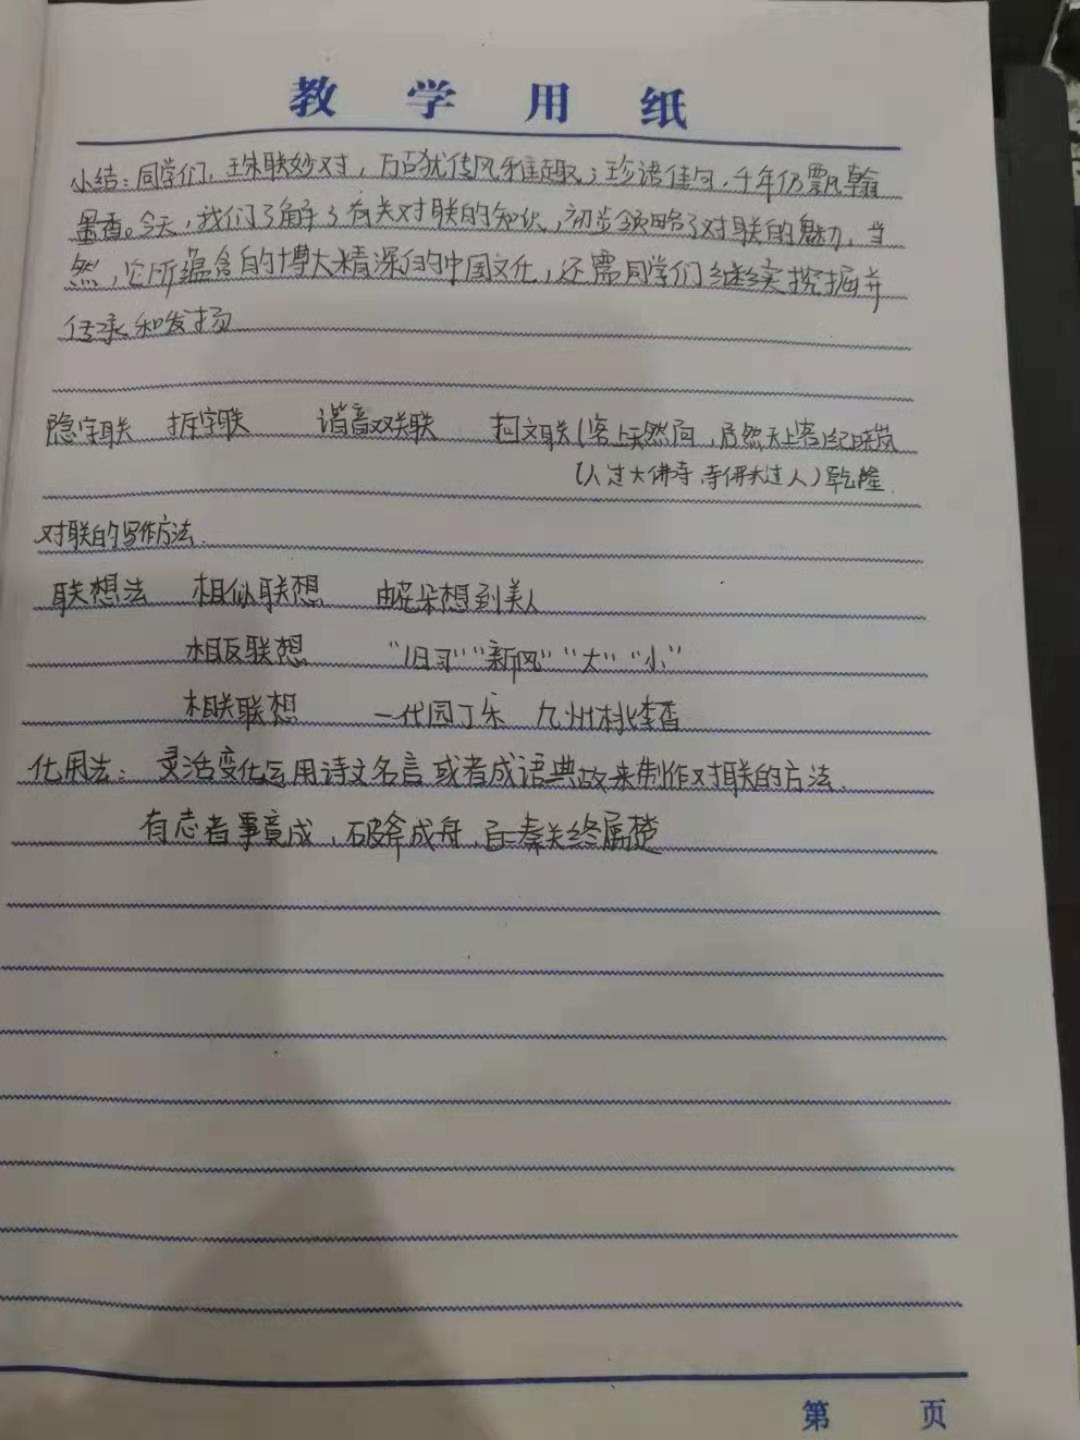 教学用纸
小结：同学们，珠联妙对，万古犹传风雅趣；珍语佳句，千年仍飘翰
墨香。今天，我们了解了有关对联的知识，初步领略了对联的魅力，当
然，它所蕴含的博大精深的中国文化，还需同学们继续挖掘并
传承和发扬
隐字联 拆字联 谐音双关联 回文联(客上天然居，居然天上客)纪晓岚
(人过大佛寺，寺佛大过人)乾隆
对联的写作方法.
联想法 相似联想 由花朵想到美人
相反联想 “旧习”“新风”“大”“小”
相关联想 一代园丁乐 九州桃李香
化用法：灵活变化运用诗文名言或者成语典故来制作对联的方法.
有志者事竟成，破斧成舟，百二秦关终属楚
第 页